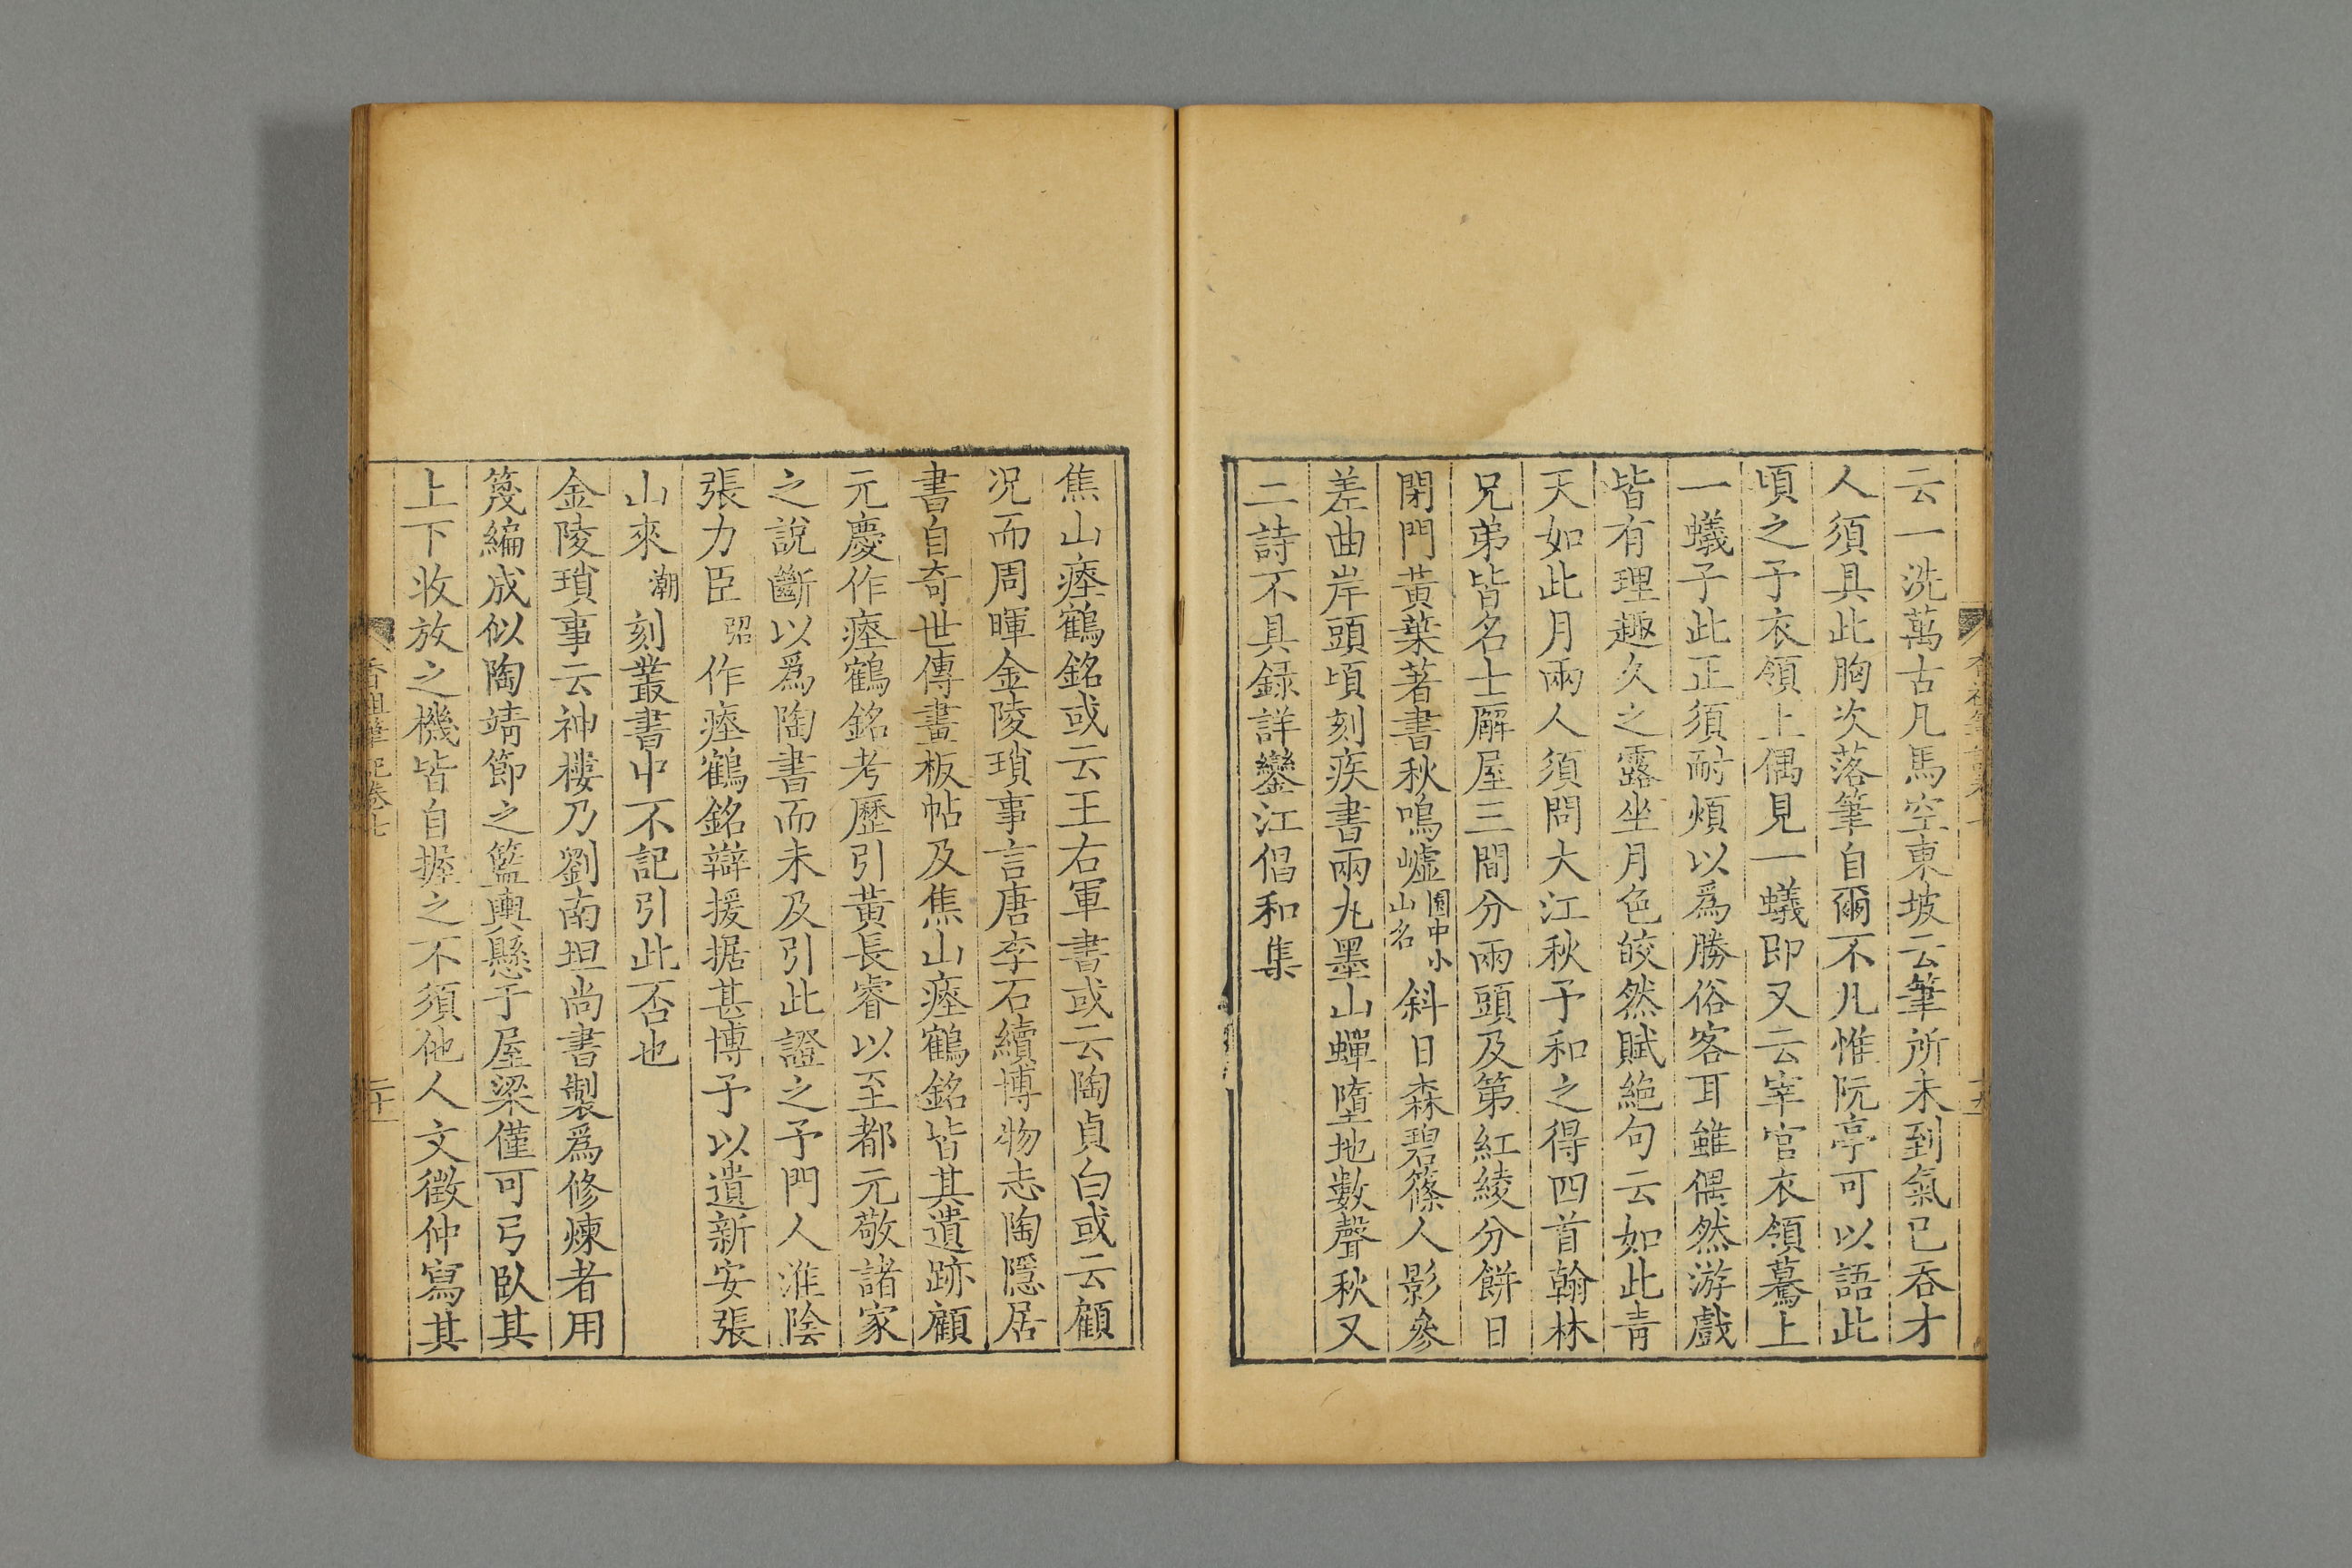 云一洗萬古凡馬空東坡云筆所未到氣已吞才
人須具此胸次落筆自爾不凡惟阮亭可以語此
頃之予衣領上偶見一蟻即又云宰官衣領驀上
一蟻子此正須耐煩以爲勝俗客耳雖偶然游戲
皆有理趣久之露坐月色皎然賦絶句云如此青
天如此月兩人須問大江秋予和之得四首翰林
兄弟皆名士廨屋三間分兩頭及第紅綾分餅日
閉門黃葉著書秋嗚嘘園中小山名斜日森碧篠人影參
差曲岸頭頃刻疾書兩九墨山蟬墮地數聲秋又
二詩不具録詳鑾江倡和集
焦山瘞鶴銘或云王右軍書或云陶貞白或云顧
况而周暉金陵瑣事言唐李石續博物志陶隱居
書自奇世傳畫板帖及焦山瘞鶴銘皆其遺跡顧
元慶作瘞鶴銘考歷引黃長睿以至都元敬諸家
之說斷以爲陶書而未及引此證之予門人淮陰
張力臣弨作瘞鶴銘辯援据甚博予以遺新安張
山來潮刻叢書中不記引此否也
金陵瑣事云神樓乃劉南坦尚書製爲修煉者用
篾編成似陶靖節之籃輿懸于屋梁僅可弓臥其
上下收放之機皆自握之不須他人文徵仲寫其
香祖筆記卷七
二十